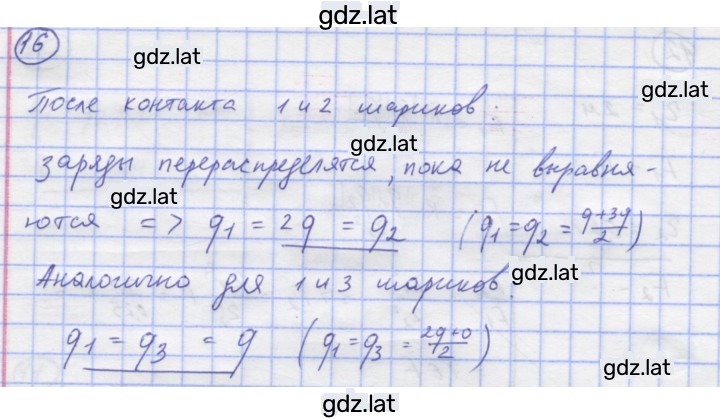 gdz.lat
16
gdz.lat
После контакта 1 и 2 шариков:
gdz.lat
gdz.lat
заряды перераспределятся, пока не выравня-
gdz.lat
ются => q1 = 2q = q2 (q1 = q2 = (q+3q)/2)
Аналогично для 1 и 3 шариков:
gdz.lat
q1 = q3 = q (q1 = q3 = (2q+0)/2)
gdz.lat
gdz.lat